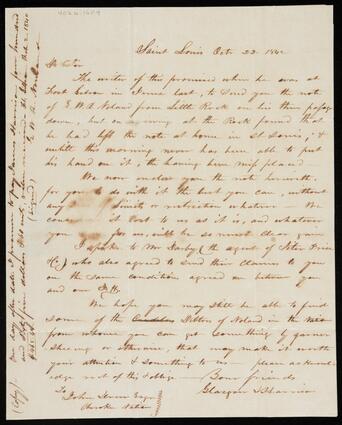 4026.1609
Saint Louis Octr 22 1842
Dr Sir
The writer of this promised when he was at
Fort Gibson in June last, to send you the note
of E. W. B. Noland from Little Rock on his then passage
down, but on arriving at the Rock found that
he had left the note at home in St Louis, &
untill this morning never has been able to put
his hand on it, tho having been misplaced
We now enclose you the note herewith,
for you to do with it the best you can, without any
limits or restriction whatever We
it Cost to us as it is, and whatever
you for us, will be so much clear gain
I spoke to Mr Darby (the agent of Peter
&C.) who also agreed to send their claims to you
on the same conditions agreed on between you
and our
We hope you may still be able to find
some of the Debtors of Noland in the
from whom you can get something by garner
sheeing or otherwise, that may make it worth
your attention & something to us please acknowl
edge receipt of this & oblige
Your friends
Glasgow & Harrison
To
John Drew Esqr
Cherokee Nation
(Copy) One day after date I promise to pay James Harrison four hundred
dollars
E W B Noland
(Signed)